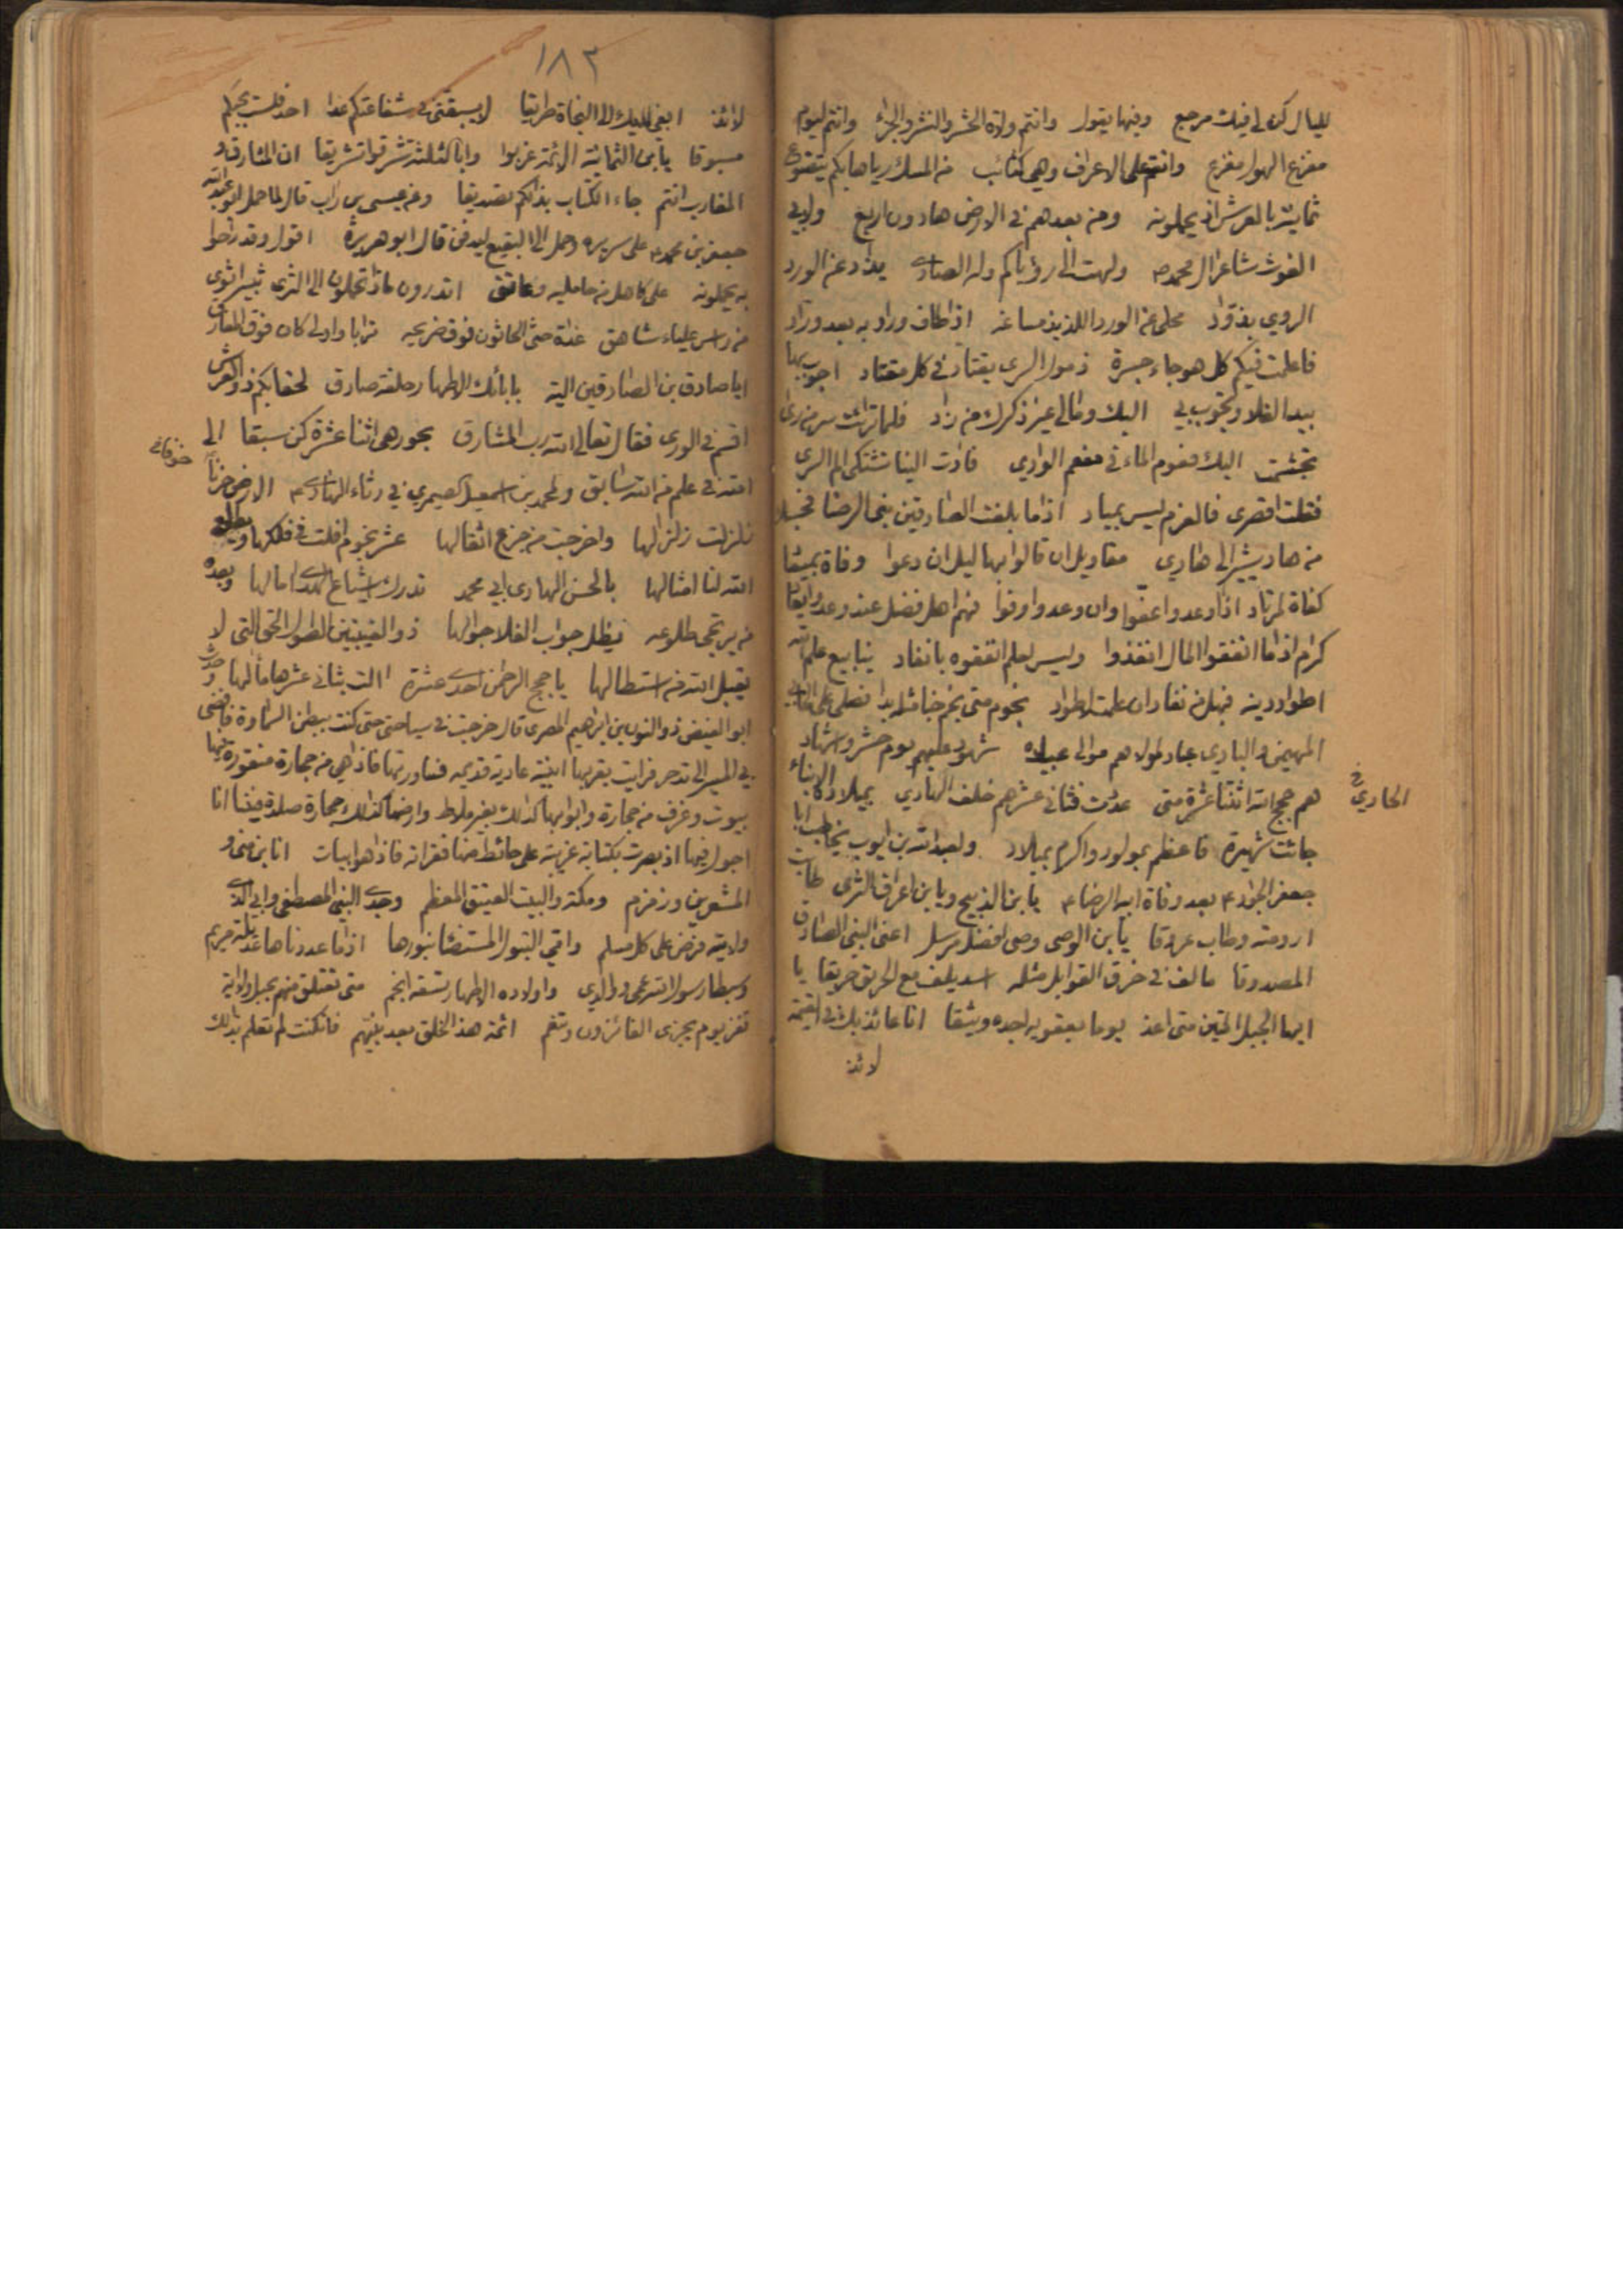 لليال كن لي فيك مرجع وفيها يقول وانتم ولاة الحشر والنشر والجزاء وانتم ليوم
مفزع الهول مفزع وانتم على الاعراف وهي كثائب من المسك رياها بكم يتضوع
ثمانية بالعرش اذ يحملونه ومن بعدهم في الارض هادون اربع ولابي
الغوث شاعر ال محمد ولهت الى رؤياكم وله الصادي يذاد عن الورد
الروي بذواد محلى عن الورد اللذيذ مساغه اذا طاف وراد به بعد وراد
فاعلمت فيكم كل هوجاء جسرة ذمول السرى يقتاد في كل مقتاد اجوب بها
بيد الفلا وتجوب بي اليك ومالي غير ذكرك من زاد فلما ترات سر من رأى
تجشمت اليك فعوم الماء في مفعم الوادي فادت الينا تشتكي الم السرى
فقلت اقصري فالعزم ليس بمياد اذا ما بلغت الصادقين بني الرضا فحسبك
من هاد يشير الى هادي مقاويل ان قالوا بهاليل ان دعوا وفاة بميثاق
كفاة لمرتاد اذا وعدوا اعفوا وان وعدوا اوفوا فهم اهل فضل عند وعد وايعاد
كرام اذا ما انفقوا المال انفذوا وليس لعلم انفقوه بانفاد ينابيع علم الله
اطواد دينه فهل من نفاد ان علمت لاطواد نجوم متى نجم خبا مثله بدا فصلى على الخابي
المهيمن والبادي عباد لمولاهم موالي عباده شهود عليهم يوم حشر واشهاد
هم حجج الله اثنتا عشرة متى عددت فثاني عشرهم خلف الهادي بميلاده الانباء
الحادي
جائت شهيرة فاعظم بمولود واكرم بميلاد ولعبد الله بن ايوب يخاطب ابا
جعفر الجواد بعد وفاة ابيه الرضاء يا بن الذبيح ويا بن اعراق الثرى طابت
ارومته وطاب عروقا يا بن الوصي وصي افضل مرسل اعني النبي الصادق
المصدوقا مالف في خرق القوابل مثله اسد يلف مع الخريق خريقا يا
ايها الحبل المتين متى اعذ يوما بعقوته اجده وثيقا انا عائذ بك في القيمة
لائذ
١٨٢
لائذ ابغي لديك الى النجاة طريقا لا يسبقني في شفاعتكم غدا احد فلست بحبكم
مسبوقا يا بن الثمانية الائمة غربوا وابا الثلثة شرقوا تشريقا ان المشارق و
المغارب انتم جاء الكتاب بذلكم تصديقا وعن عيسى بن داب قال لما حمل ابو عبد الله
جعفر بن محمد على سريره وحمل الى البقيع ليدفن قال ابو هريرة اقول وقد راحوا
به يحملونه على كاهل من حامليه وعاتق اتدرون ماذا تحملون الى الثرى ثبيرا ثوى
من راس علياء شاهق غداة حثى الحاثون فوق ضريحه ترابا واولى كان فوق المفارق
ايا صادق بن الصادقين الية بابائك الاطهار حلفة صادق لحقا بكم ذو العرش
اقسم في الورى فقال تعالى الله رب المشارق نجوم هي اثنا عشرة كن سبقا الى
الله في علم من الله سابق ولمحمد بن اسمعيل الصيمري في رثاء الهادي الارض حزنا
خوفا
زلزلت زلزالها واخرجت من جزع اثقالها عشر نجوم افلت في فلكها ويطلع
الله لنا امثالها بالحسن الهادي ابي محمد تدرك اشياع الهدى امالها وبعده
من يرتجى طلوعه يظل جواب الفلا جوالها ذو الغيبتين الطول الحق التي لا
يقبل الله من استطالها يا حجج الرحمن احدى عشرة الت بثاني عشرها مآلها وحدث
ابو الفيض ذو النون بن ابراهيم المصري قال خرجت في سياحتي حتى كنت ببطن السماوة فافضى
بي المسير الى تدمر فرايت بقربها ابنية عادية قديمة فساورتها فاذا هي من حجارة منقورة فيها
بيوت وغرف من حجارة وابوابها كذلك بغير ملاط وارضها كذلك حجارة صلدة فبينا انا
اجول فيها اذ بصرت بكتابة غريبة على حائط منها فقراته فاذا هو ابيات انا بن منى و
المشعرين وزمزم ومكة والبيت العتيق المعظم وجدي النبي المصطفى وابي الذي
ولايته فرض على كل مسلم وامي البتول المستضئا بنورها اذا ما عددناها عديلة مريم
وسبطا رسول الله عمي ووالدي واولاده الاطهار تسعة انجم متى تعتلق منهم بحبل ولاية
تفز يوم يجزى الفائزون وتنعم ائمة هذا الخلق بعد نبيهم فان كنت لم تعلم بذلك